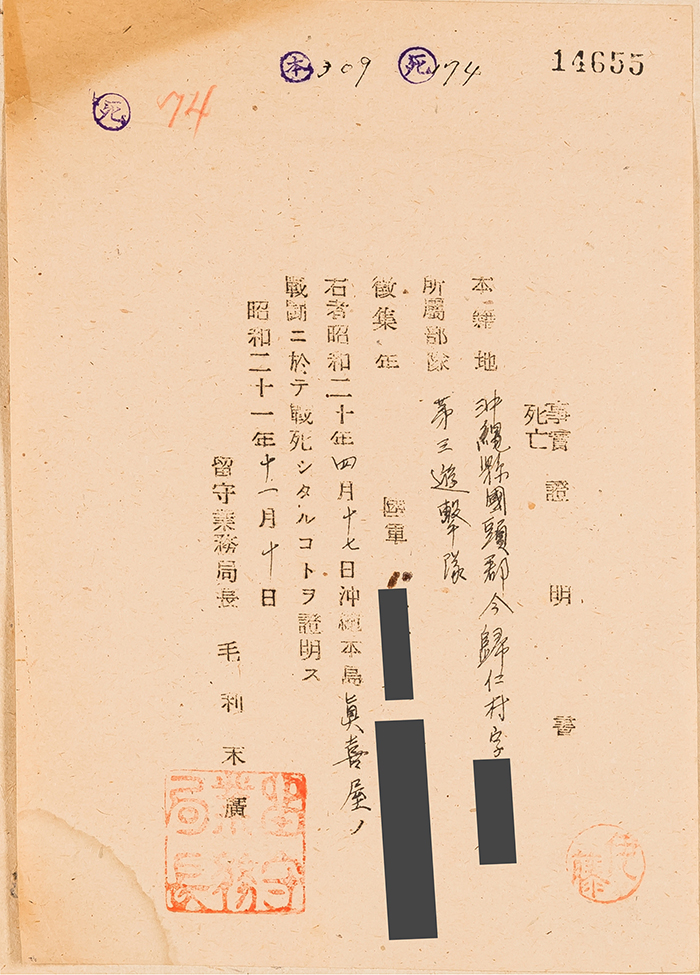 14655
本 309 死 174
死 74
死亡
事實證明書
本籍地 沖縄縣國頭郡今歸仁村字
所屬部隊 第三遊擊隊
徵集年 陸軍
右者昭和二十年四月十七日沖縄本島眞喜屋ノ
戰鬪ニ於テ戰死シタルコトヲ證明ス
昭和二十一年十一月十日
留守業務局長 毛利末廣
留守業務局長
佐藤